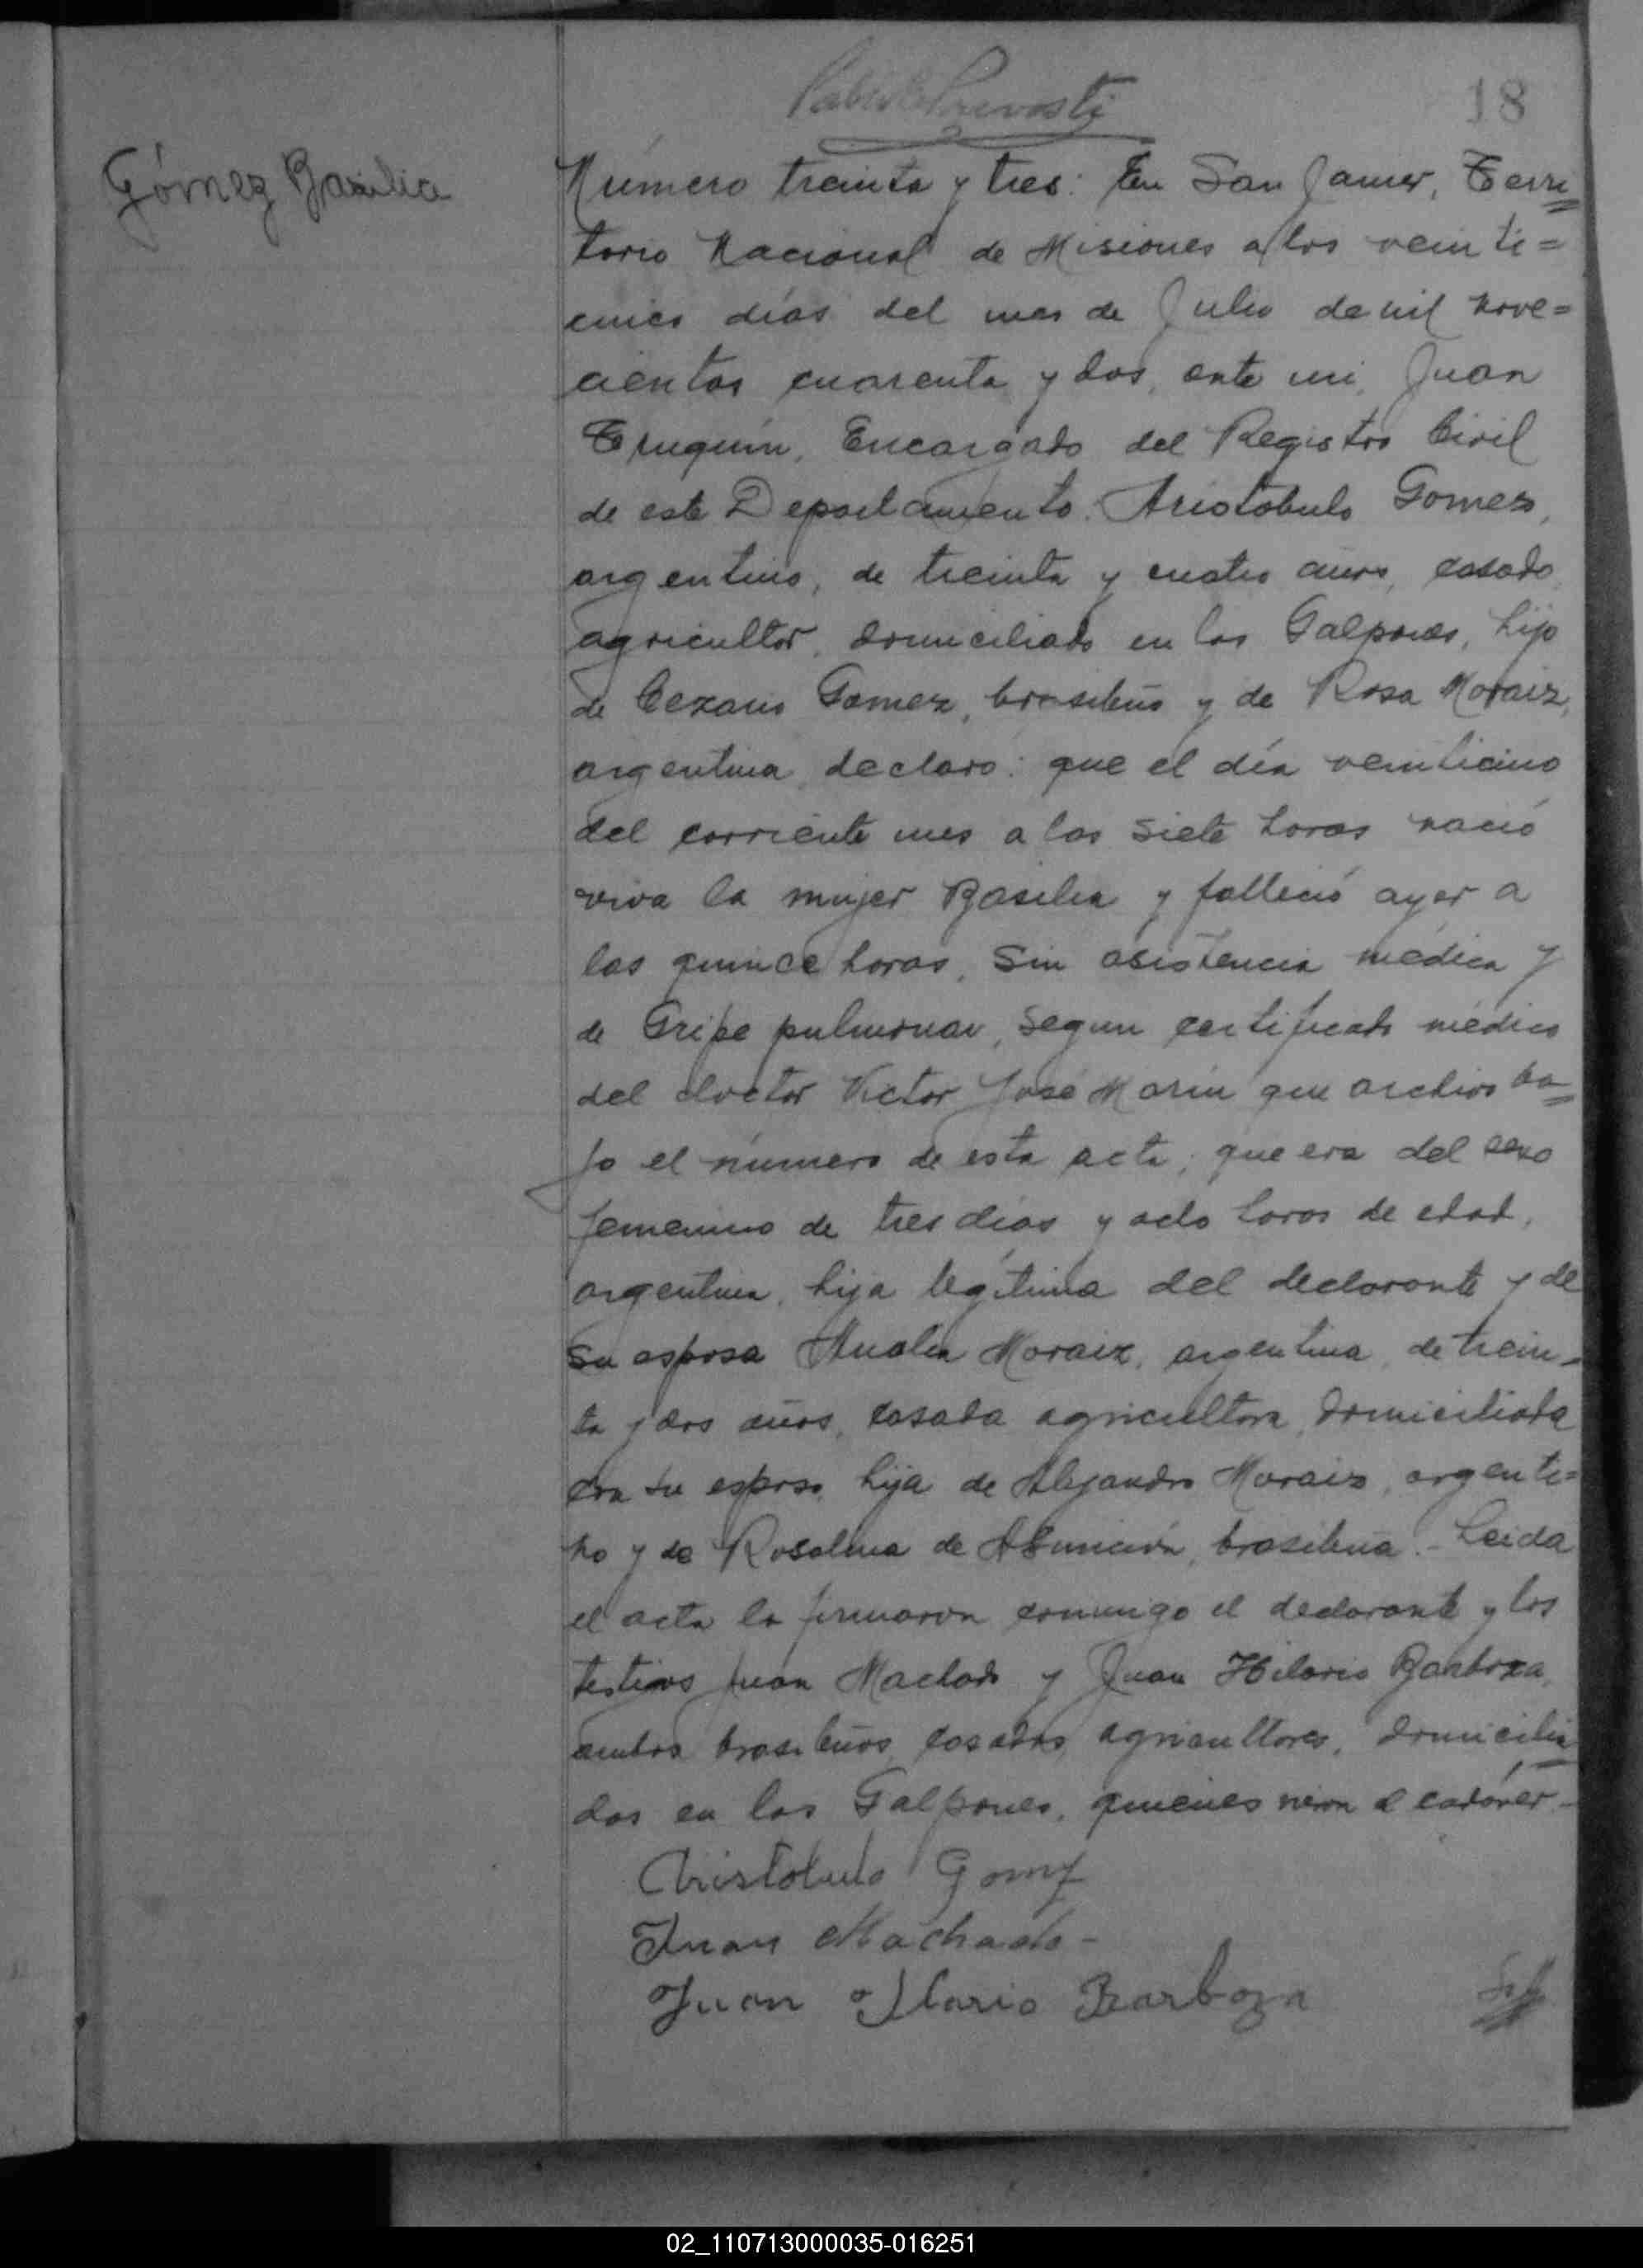 18
Gómez Basilia
Número treinta y tres: En San Javier, Terri
torio Nacional de Misiones a los veinti=
cinco días del mes de Julio de mil nove=
cientos cuarenta y dos, ante mi, Juan
Encargado del Registro Civil
de este Departamento, Aristobulo Gomez,
argentino, de treinta y cuatro años, casado
agricultor, domiciliado en los Galpones, hijo
de Cezario Gomez, brasileño y de Rosa Moraiz,
argentina, declaro: que el día veinticinco
del corriente mes a las siete horas nació
viva la mujer Basilia y falleció ayer a
las quince horas, sin asistencia médica y
de Gripe pulmonar, segun certificado médico
del doctor Victor José Marin que archivo ba=
jo el número de esta acta; que era del sexo
femenino de tres días y ocho horas de edad,
argentina, hija legítima del declarante y de
su esposa Moraiz, argentina, de trein-
ta y dos años, casada agricultora, domiciliada
con su esposo, hija de Alejandro Moraiz, argenti=
no y de Rosalina de Asunción, brasileña.- Leida
el acta la firmaron conmigo el declarante y los
testigos Juan Machado y Juan Hilario Barboza,
ambos brasileños, casados, agricultores, domicilia
dos en los Galpones, quienes vieron el cadáver.-
Aristobulo Gomez
Juan Machado-
Juan Ilario Barboza
02_110713000035-016251